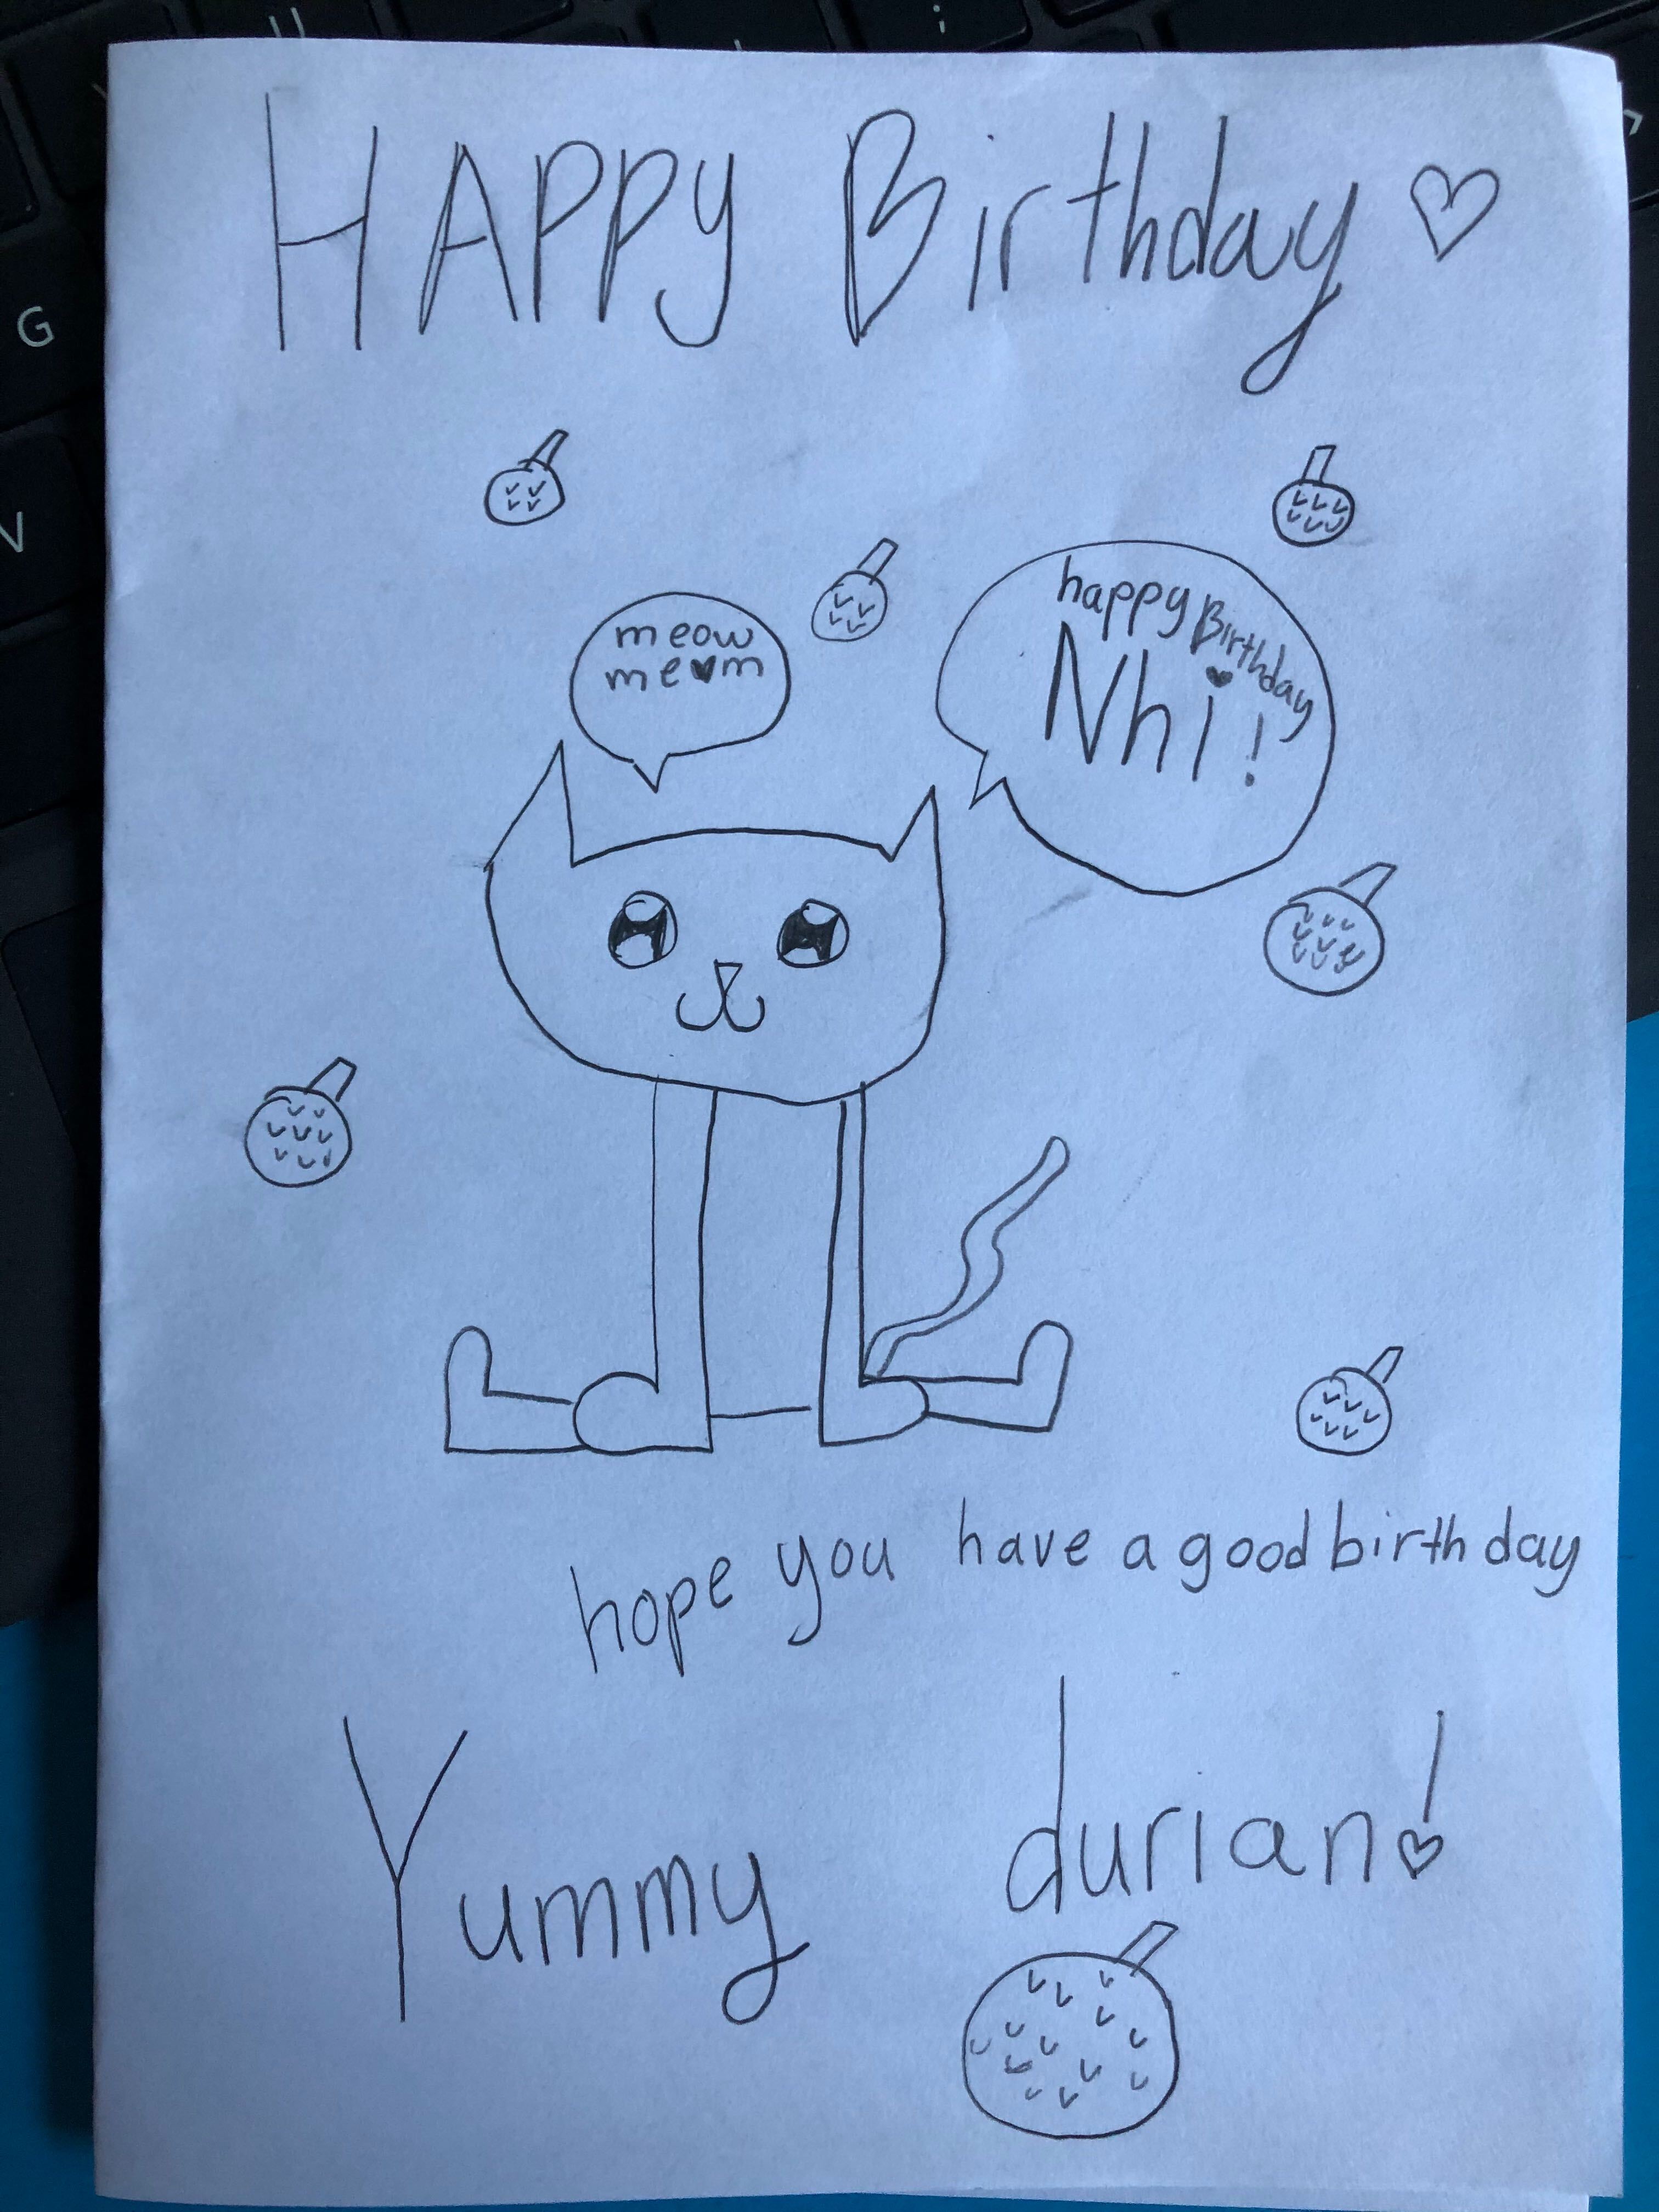 U
;
G
V
HAPPy Birthday ♡
meow
me♥m
happy Birthday
Nhi!
hope you have a good birthday
Yummy durian!